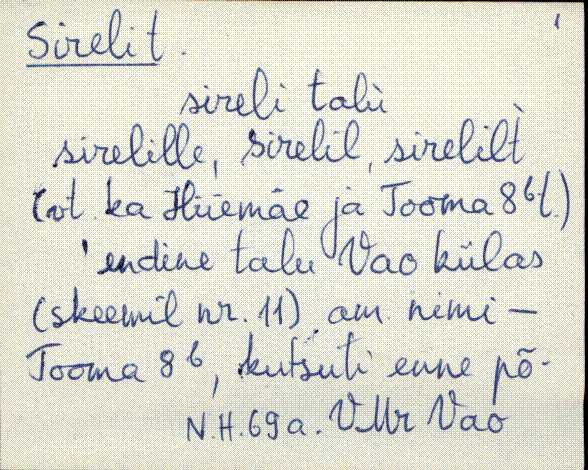 1
Sirelit.
sireli talu
sirelille, sirelil, sirelilt
(vt. ka Hüemäe ja Tooma 8ᵇ t.)
endine talu Vao külas
(skeemil nr. 11) am. nimi –
Tooma 8ᵇ, kutsuti enne põ-
N.H. 69 a. VMr Vao